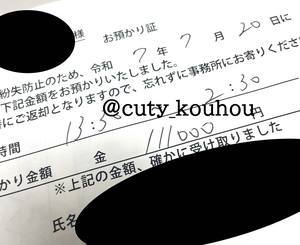 様 お預かり証
紛失防止のため、令和 7年 7月 20日に
下記金額をお預かりいたしました。
にご返却となりますので、忘れずに事務所にお寄りくださ
@cuty_kouhou
時間 13:30 2:30
かり金額 金 111000 円
※上記の金額、確かに受け取りました
氏名